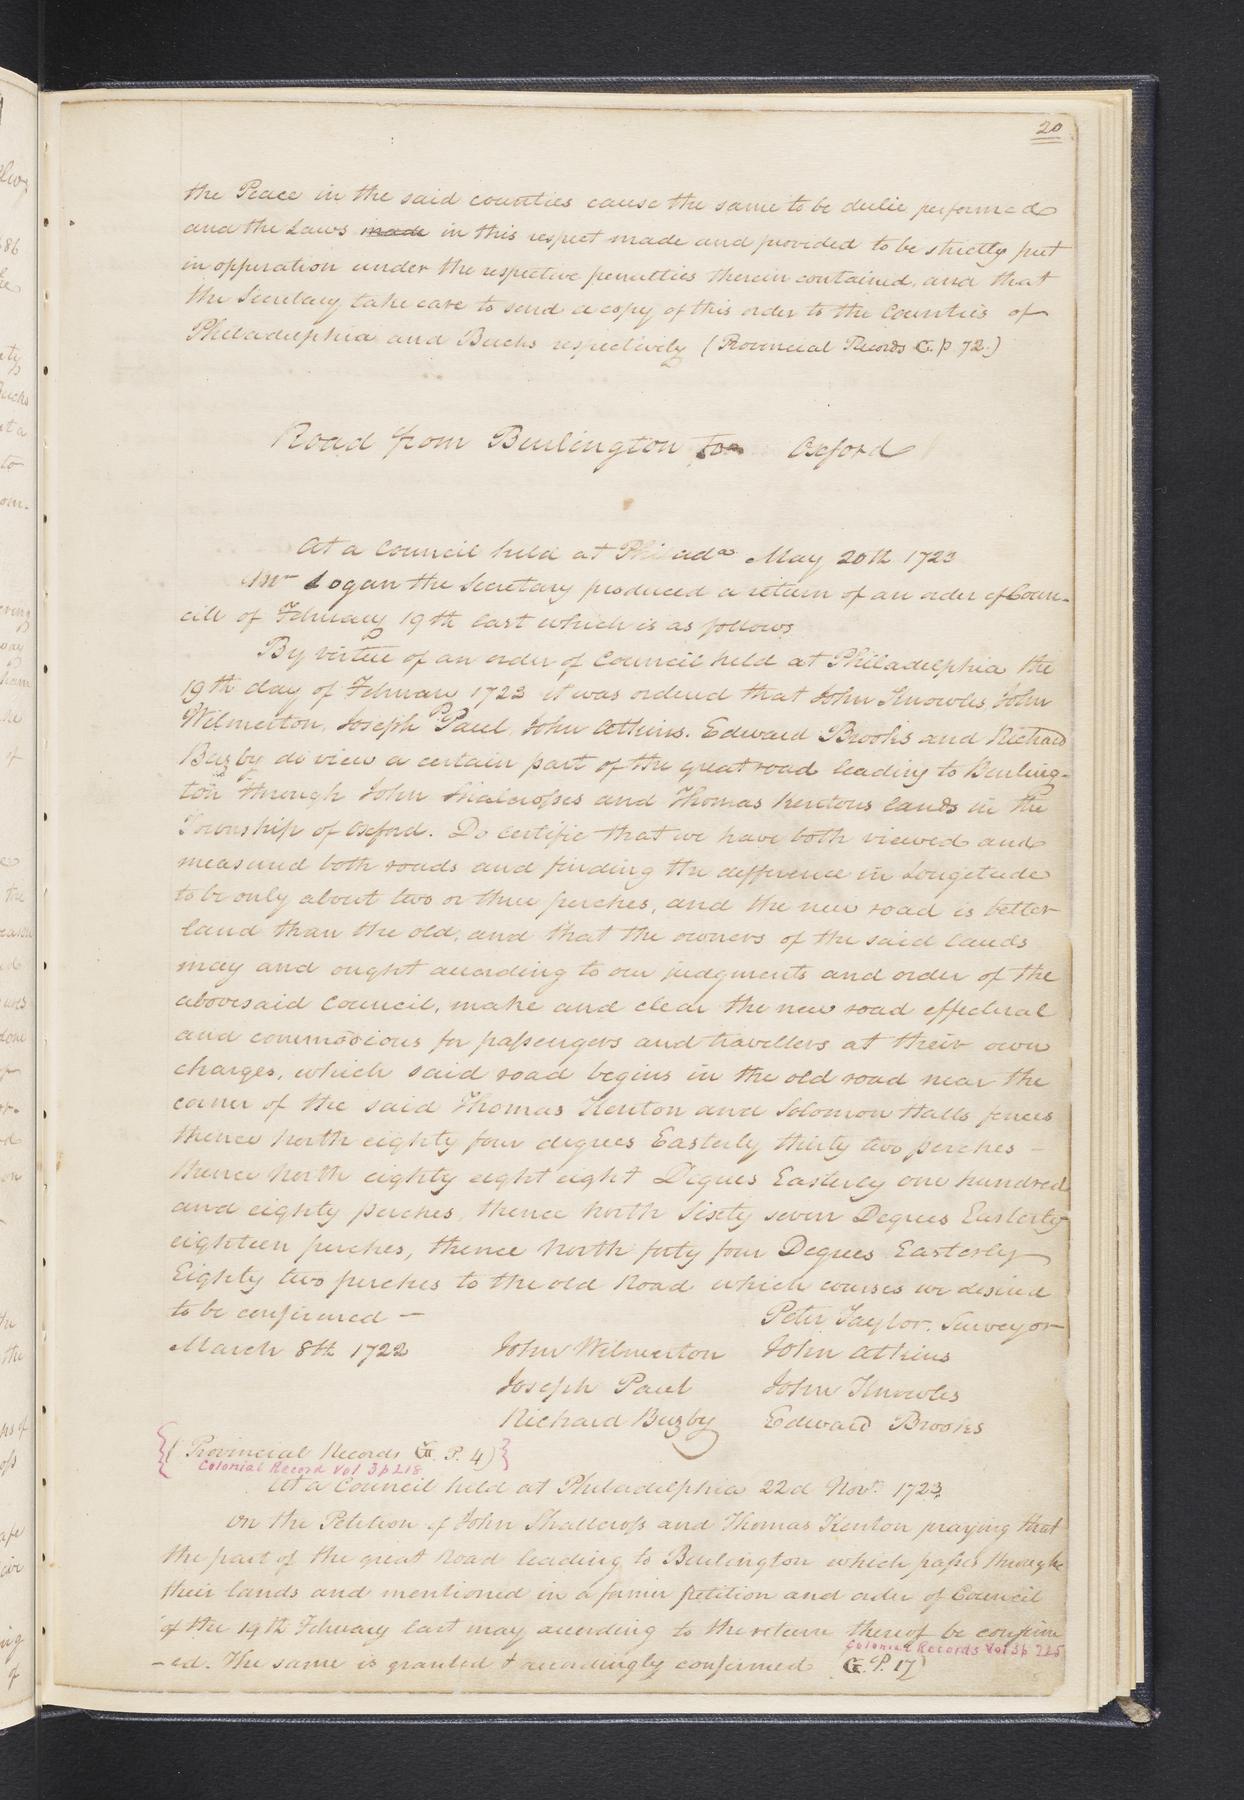 20
the Peace in the said counties cause the same to be dulie performed
and the Laws made in this respect made and provided to be strictly put
in opperation under the respective penalties therein contained, and that
the Secretary take care to send a copy of this order to the Counties of
Philadelphia and Bucks respectively (Provincial Records G. p. 72.)
Road from Burlington for Oxford
At a Council held at Philada May 20th 1723
Mr Logan the Secretary produced a return of an order of Coun-
cill of February 19th last which is as follows
By virtue of an order of Council held at Philadelphia the
19th day of February 1723 it was ordered that John Knowles John
Wilmerton, Joseph Paul, John Atkins. Edward Brooks and Richard
Buzby do view a certain part of the great road leading to Burling-
ton through John Shalcrosses and Thomas Kentons lands in the
Township of Oxford. Do certifie that we have both viewed and
measured both roads and finding the difference in Longetude
to be only about two or three perches, and the new road is better
land than the old, and that the owners of the said lands
may and ought according to our judgments and order of the
abovesaid Council, make and clear the new road effectual
and commodious for passengers and travellers at their own
charges, which said road begins in the old road near the
corner of the said Thomas Kenton and Solomon Halls fences
thence North eighty four degrees Easterly thirty two perches -
thence North eighty eight eight Degrees Easterly one hundred
and eighty perches, thence North Sixty seven Degrees Easterly
eighteen perches, thence North forty four Degrees Easterly
Eighty two perches to the old Road which courses we desired
to be confirmed - Peter Taylor. Surveyor
March 8th 1722 John Wilmerton John Atkins
Joseph Paul John Knowles
Richard Buzby Edward Brooks
(Provincial Records G. P. 4)
Colonial Record Vol 3 p 218
At a Council held at Philadelphia 22d Novr 1723
On the Petition of John Shallcross and Thomas Kenton praying that
the part of the great Road leading to Burlington which passes through
their lands and mentioned in a former petition and order of Council
of the 19th February last may according to the return thereof be confirm
Colonial Records Vol 3 p 225
-ed. The same is granted & accordingly confirmed G. P. 17)